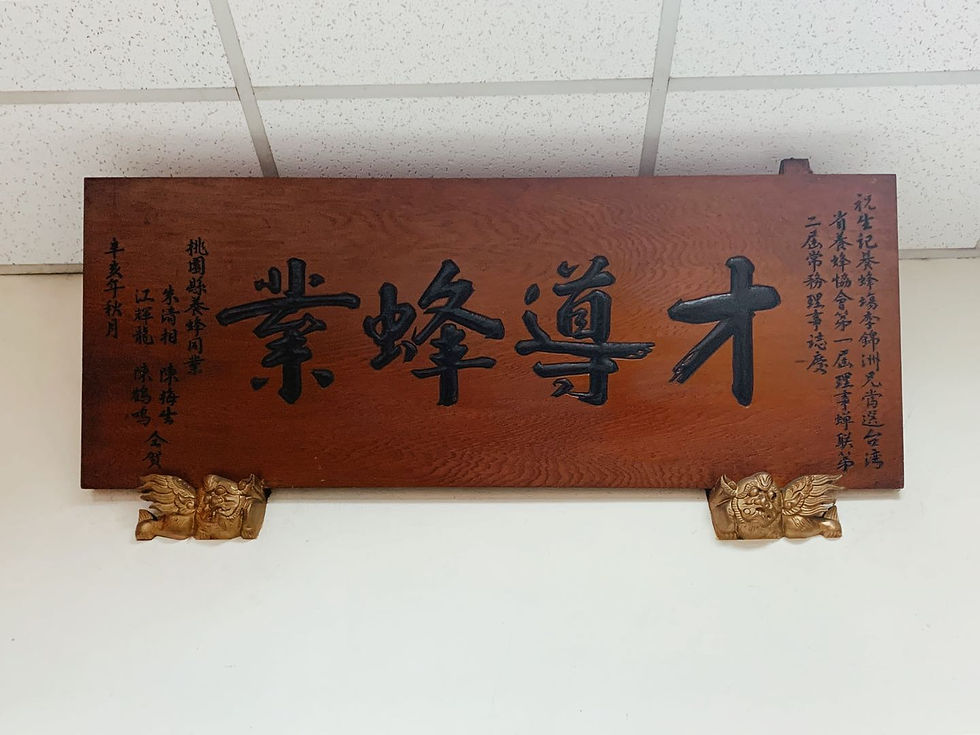 祝生記養蜂場李錦洲兄當選台湾
省養蜂協會第一屆理事蟬联第
二屆常務理事誌慶
才導蜂業
桃園縣養蜂同業
朱 相 陳梅生
江輝龍 陳鶴鳴
仝賀
辛亥年秋月